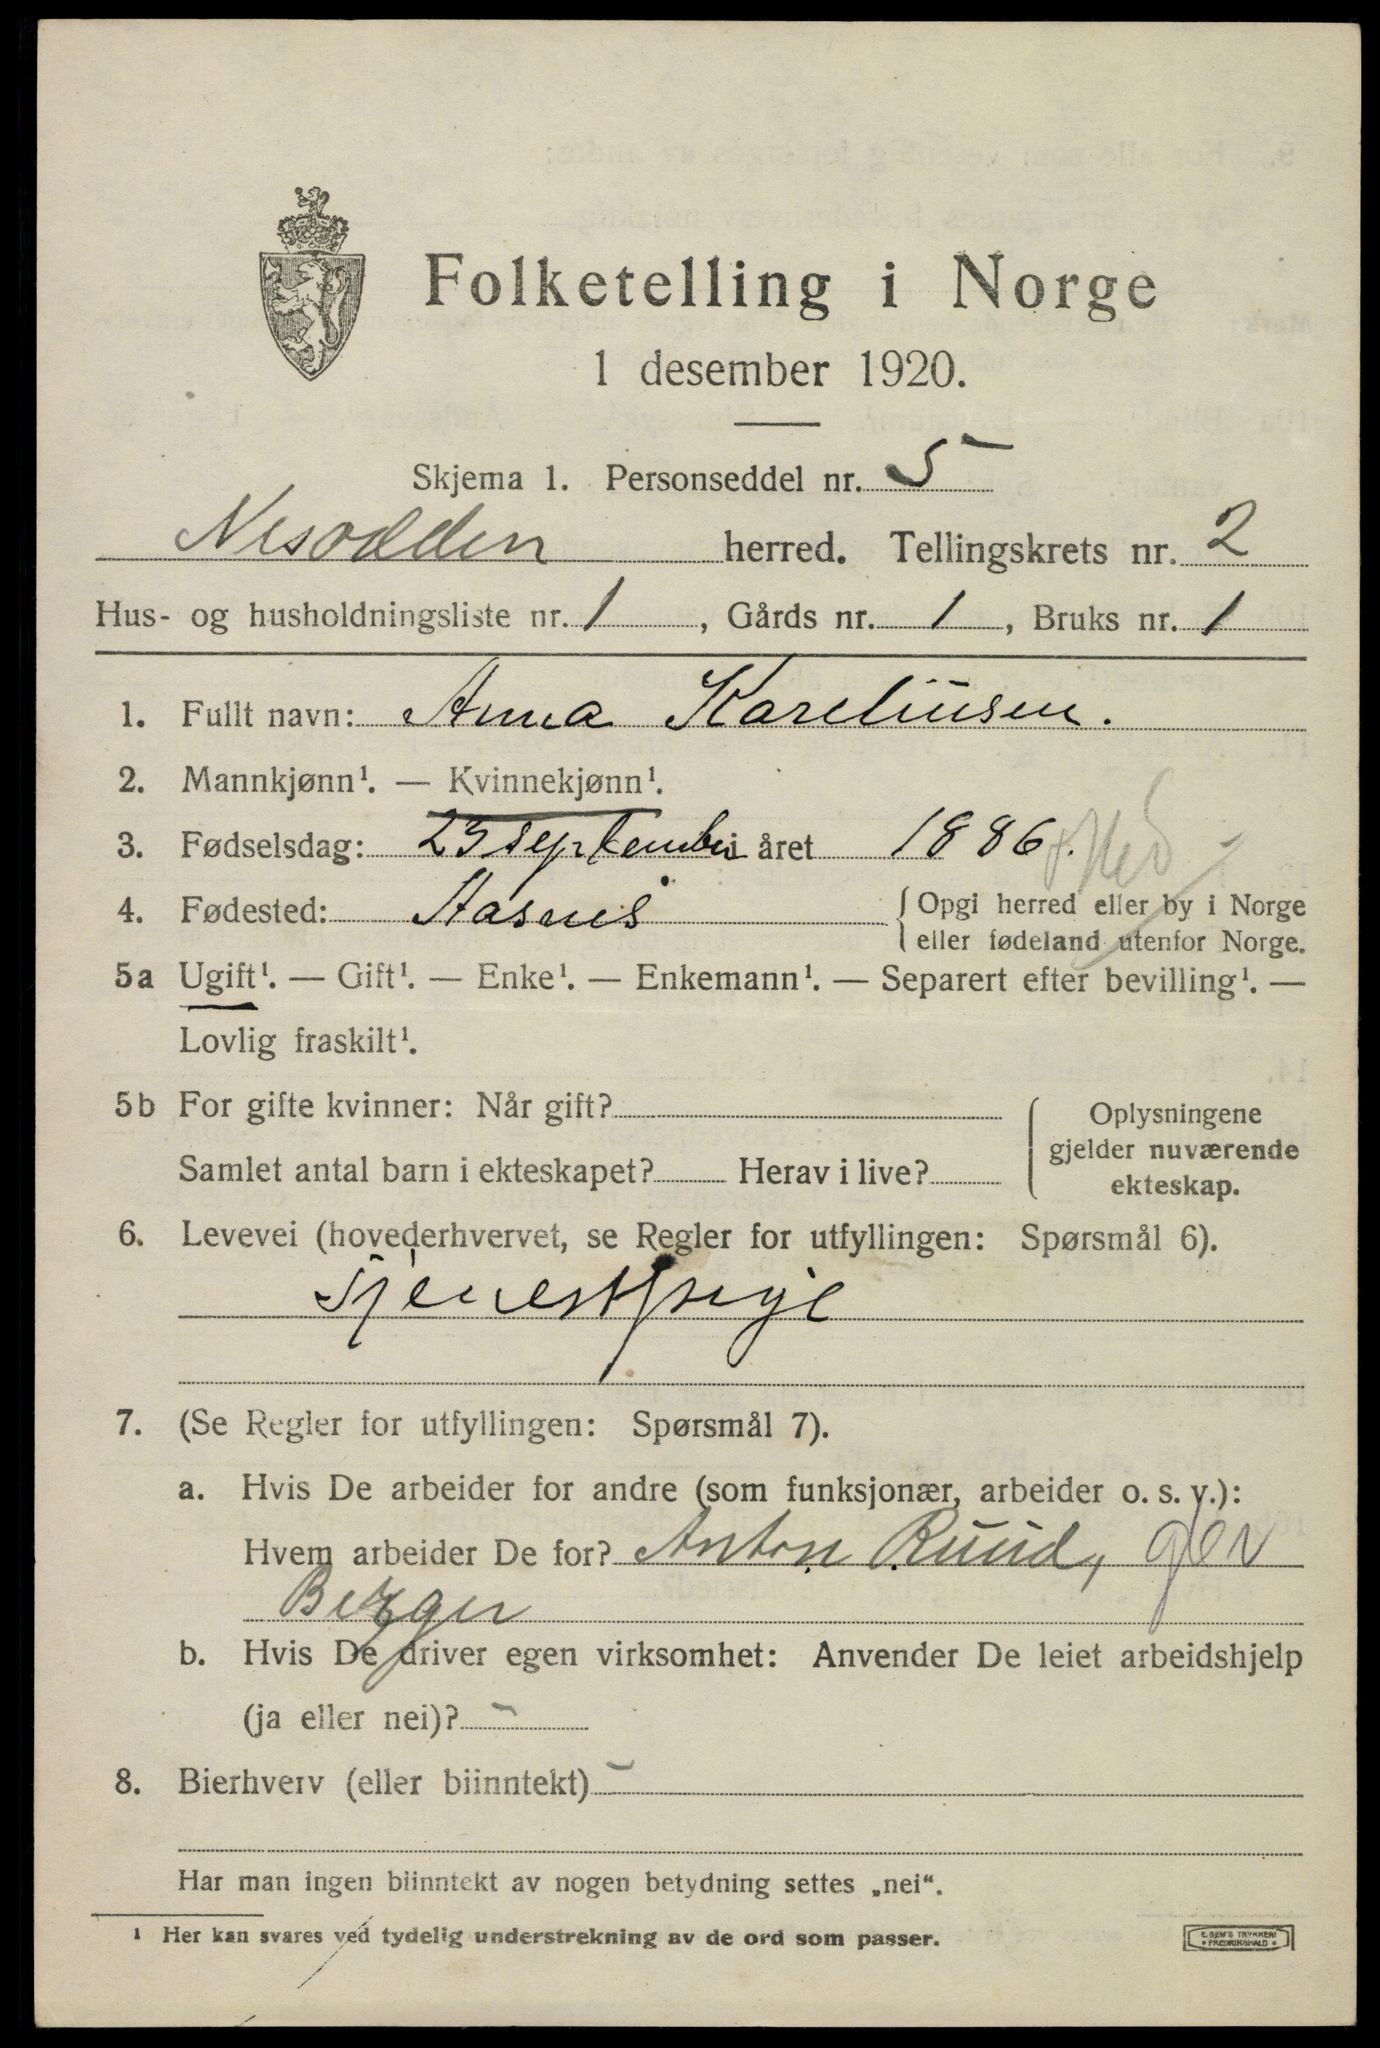 Folketelling i Norge
1 desember 1920.
Skjema 1. Personseddel nr. 5
Nesodden herred. Tellingskrets nr. 2
Hus- og husholdningsliste nr. 1, Gårds nr. 1, Bruks nr. 1
1. Fullt navn: Anna Kareliusen.
2. Mannkjønn¹. — Kvinnekjønn¹.
3. Fødselsdag: 23 september i året 1886.
4. Fødested: Aasnes { Opgi herred eller by i Norge
eller fødeland utenfor Norge.
5a Ugift¹. — Gift¹. — Enke¹. — Enkemann¹. — Separert efter bevilling¹. —
Lovlig fraskilt¹.
5b For gifte kvinner: Når gift?
Samlet antal barn i ekteskapet? Herav i live?
Oplysningene
gjelder nuværende
ekteskap.
6. Levevei (hovederhvervet, se Regler for utfyllingen: Spørsmål 6).
Tjenestpige
7. (Se Regler for utfyllingen: Spørsmål 7).
a. Hvis De arbeider for andre (som funksjonær, arbeider o. s. v.):
Hvem arbeider De for? Anton Ruud,
Berger
b. Hvis De driver egen virksomhet: Anvender De leiet arbeidshjelp
(ja eller nei)? -
8. Bierhverv (eller biinntekt) -
Har man ingen biinntekt av nogen betydning settes „nei“.
¹ Her kan svares ved tydelig understrekning av de ord som passer.
E. SEM'S TRYKKERI
FREDRIKSHALD